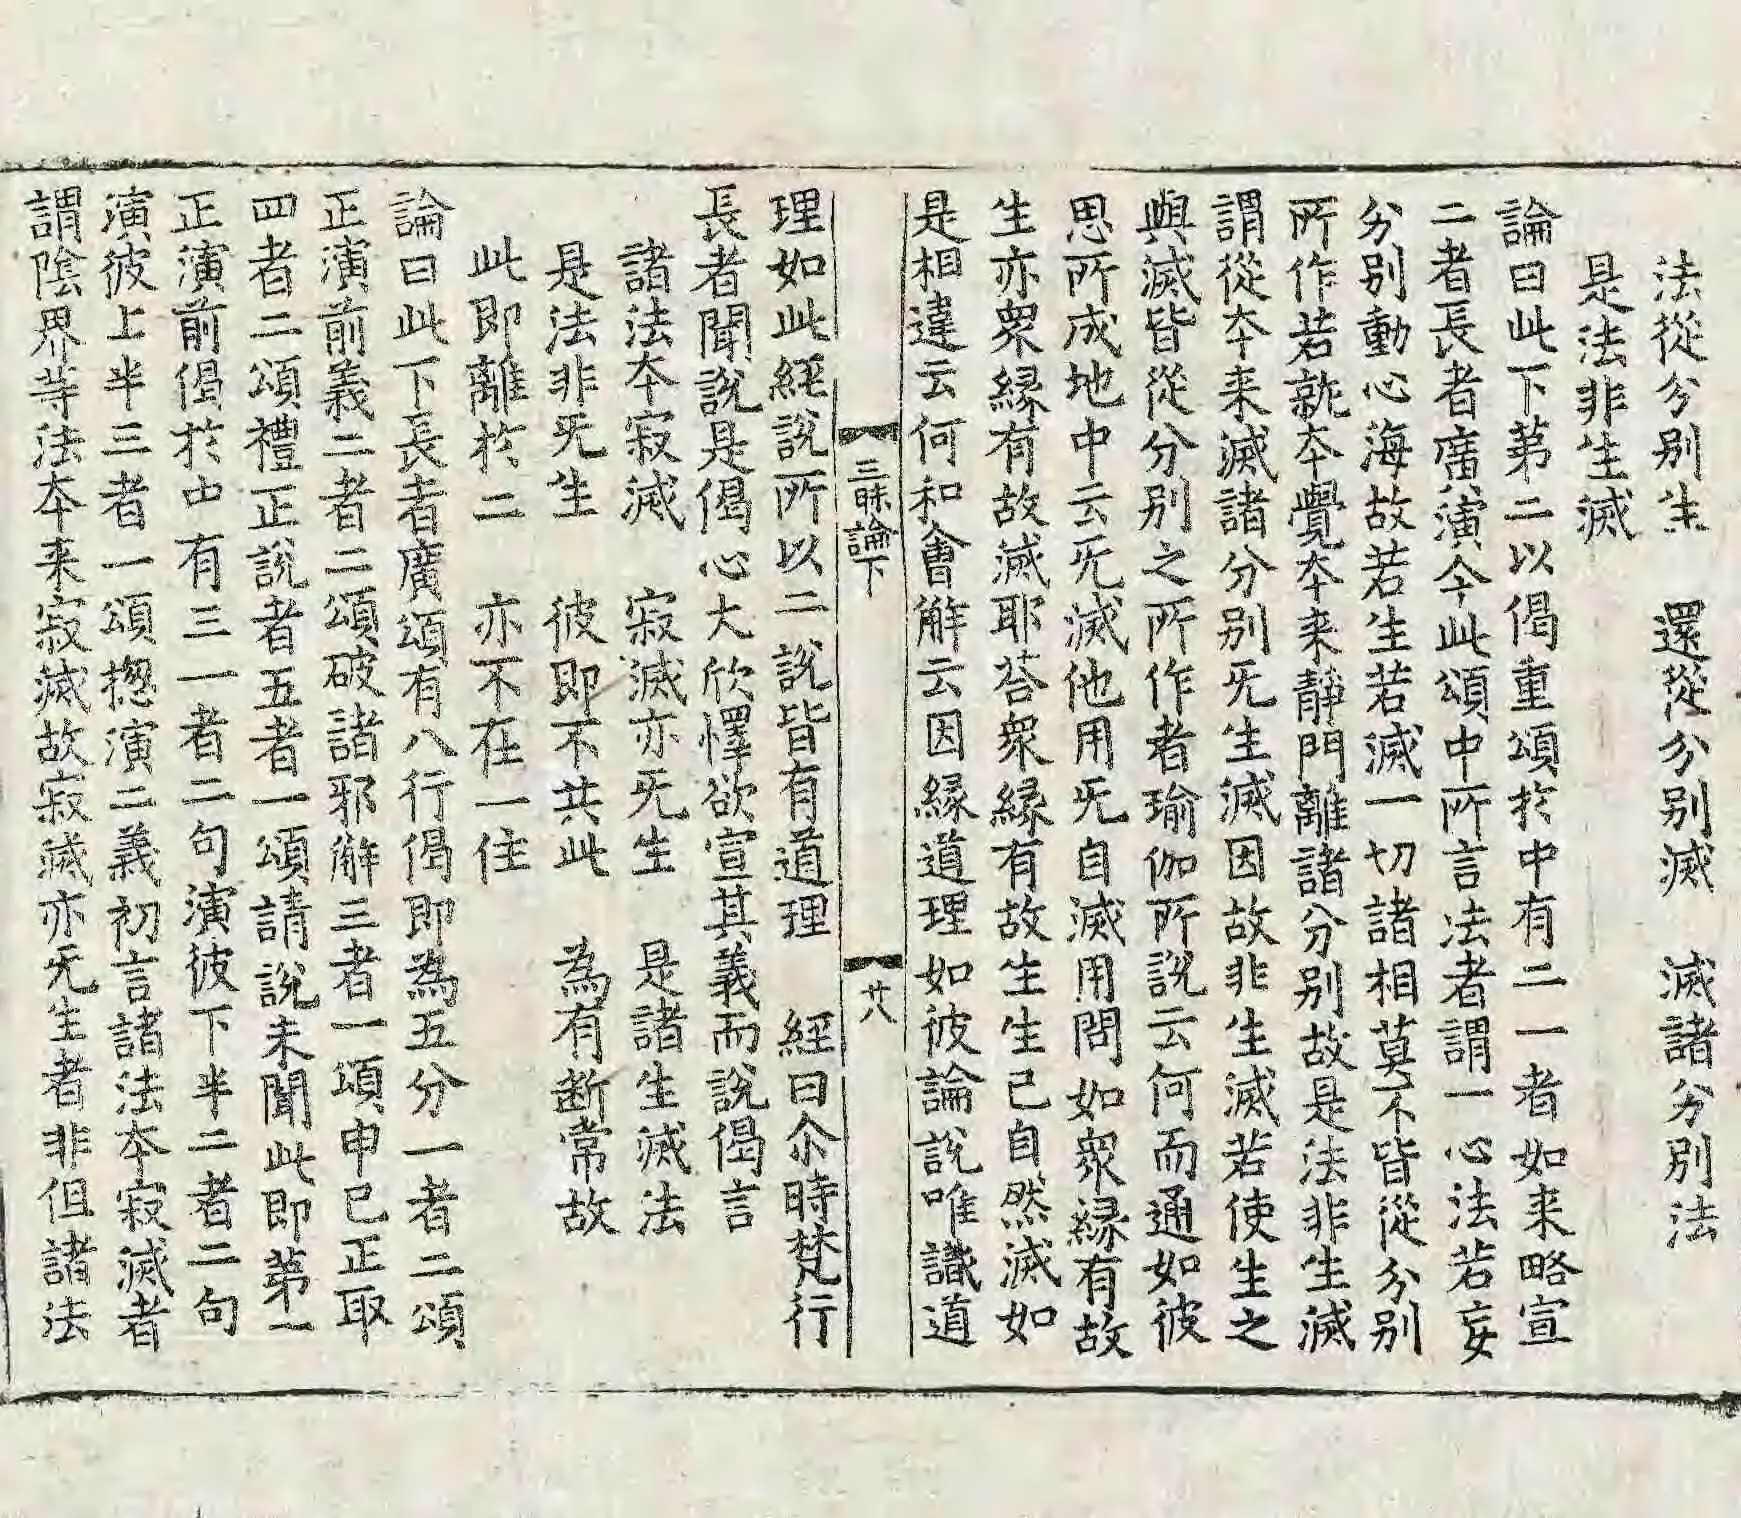 法從分別生　還從分別滅　滅諸分別法
是法非生滅
論曰此下苐二以偈重頌扵中有二一者如来略宣
二者長者廣演今此頌中所言法者謂一心法若妄
分别動心海故若生若滅一切諸相莫不皆從分别
所作若就夲覺夲来靜門離諸分别故是法非生滅
謂從夲来滅諸分别旡生滅因故非生滅若使生之
與滅皆從分别之所作者瑜伽所說云何而通如彼
思所成地中云旡滅他用旡自滅用問如衆縁有故
生亦衆縁有故滅耶荅衆縁有故生生已自然滅如
是相違云何和會解云因縁道理如彼論說唯識道
三昧論下
廿八
理如此經說所以二說皆有道理　經曰尒時梵行
長者聞說是偈心大欣懌欲宣其義而說偈言
諸法夲寂滅　寂滅亦旡生　是諸生滅法
是法非旡生　彼即不共此　為有断常故
此即離扵二　亦不在一住
論曰此下長者廣頌有八行偈即為五分一者二頌
正演前義二者二頌破諸邪解三者一頌申已正取
四者二頌禮正說者五者一頌請說未聞此即苐一
正演前偈扵中有三一者二句演彼下半二者二句
演彼上半三者一頌揔演二義初言諸法夲寂滅者
謂隂界等法夲来寂滅故寂滅亦旡生者非但諸法